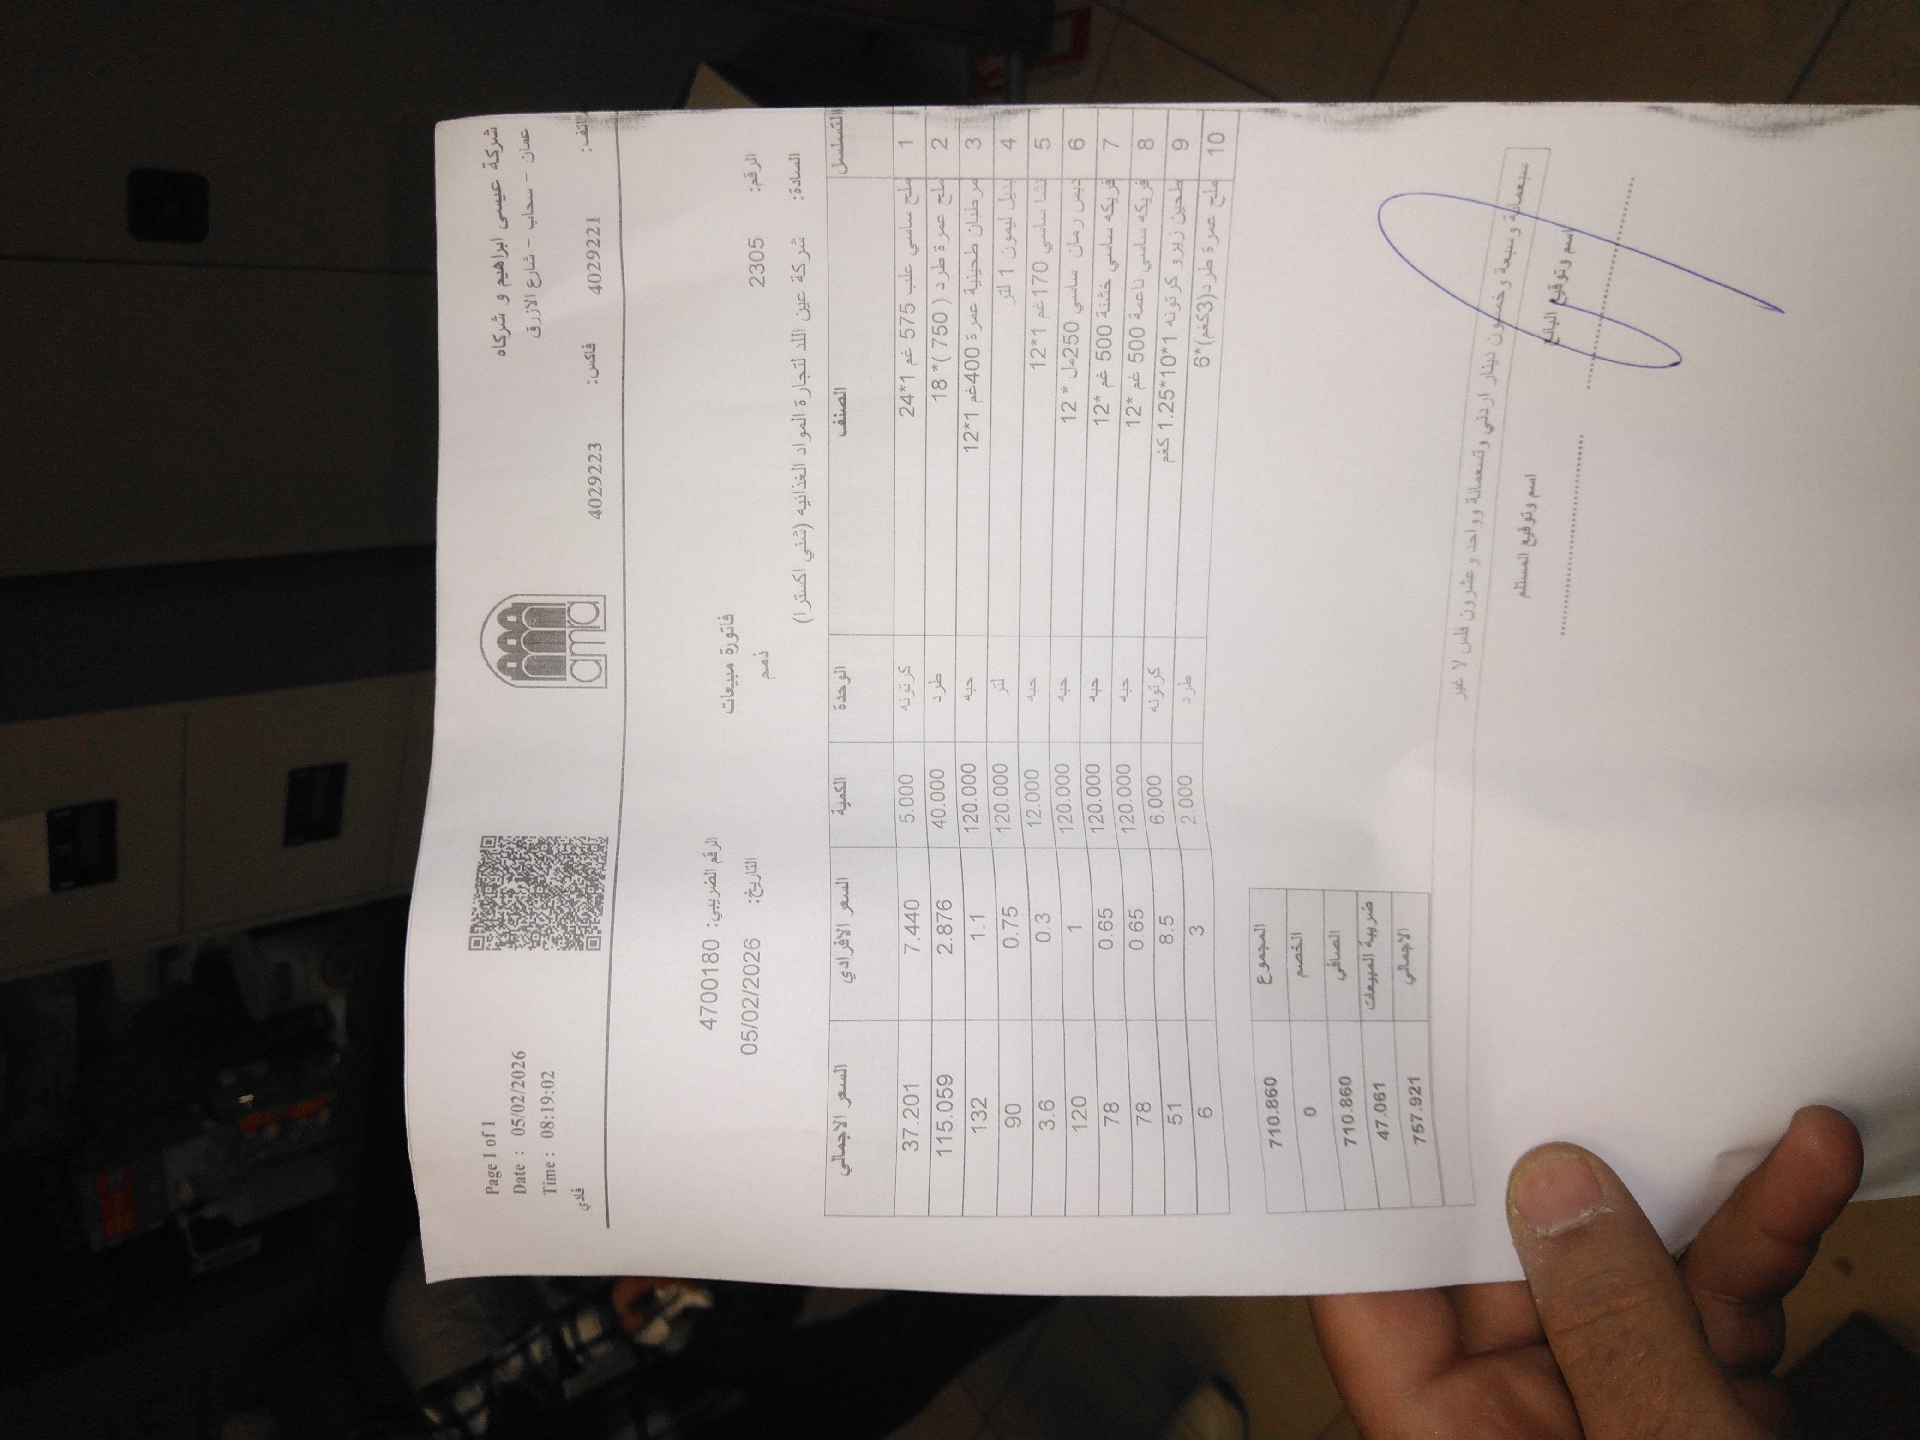 شركة عيسى ابراهيم و شركاه
عمان - سحاب - شارع الازرق
هاتف: 4029221 فاكس: 4029223
amra
Page 1 of 1
Date : 05/02/2026
Time : 08:19:02
فادي
الرقم الضريبي: 4700180
فاتورة مبيعات
الرقم: 2305
التاريخ: 05/02/2026
ذمم
السادة: شركة عين اللد لتجارة المواد الغذائيه (شني اكسترا)
التسلسل الصنف الوحدة الكمية السعر الافرادي السعر الاجمالي
1 ملح ساسي علب 575 غم 1*24 كرتونه 5.000 7.440 37.201
2 ملح عمرة طرد ( 750 )* 18 طرد 40.000 2.876 115.059
3 مرطبان طحينية عمرة 400غم 1*12 حبه 120.000 1.1 132
4 بديل ليمون 1 لتر لتر 120.000 0.75 90
5 نشا ساسي 170غم 1*12 حبه 12.000 0.3 3.6
6 دبس رمان ساسي 250مل * 12 حبه 120.000 1 120
7 فريكه ساسي خشنة 500 غم *12 حبه 120.000 0.65 78
8 فريكه ساسي ناعمة 500 غم *12 حبه 120.000 0.65 78
9 طحين زيرو كرتونه 1*10*1.25 كغم كرتونه 6.000 8.5 51
10 ملح عمرة طرد(3كغم)*6 طرد 2.000 3 6
المجموع 710.860
الخصم 0
الصافي 710.860
ضريبة المبيعات 47.061
الاجمالي 757.921
سبعمائة وسبعة وخمسون دينار اردني وتسعمائة وواحد وعشرون فلس لا غير
اسم وتوقيع البائع
اسم وتوقيع المستلم